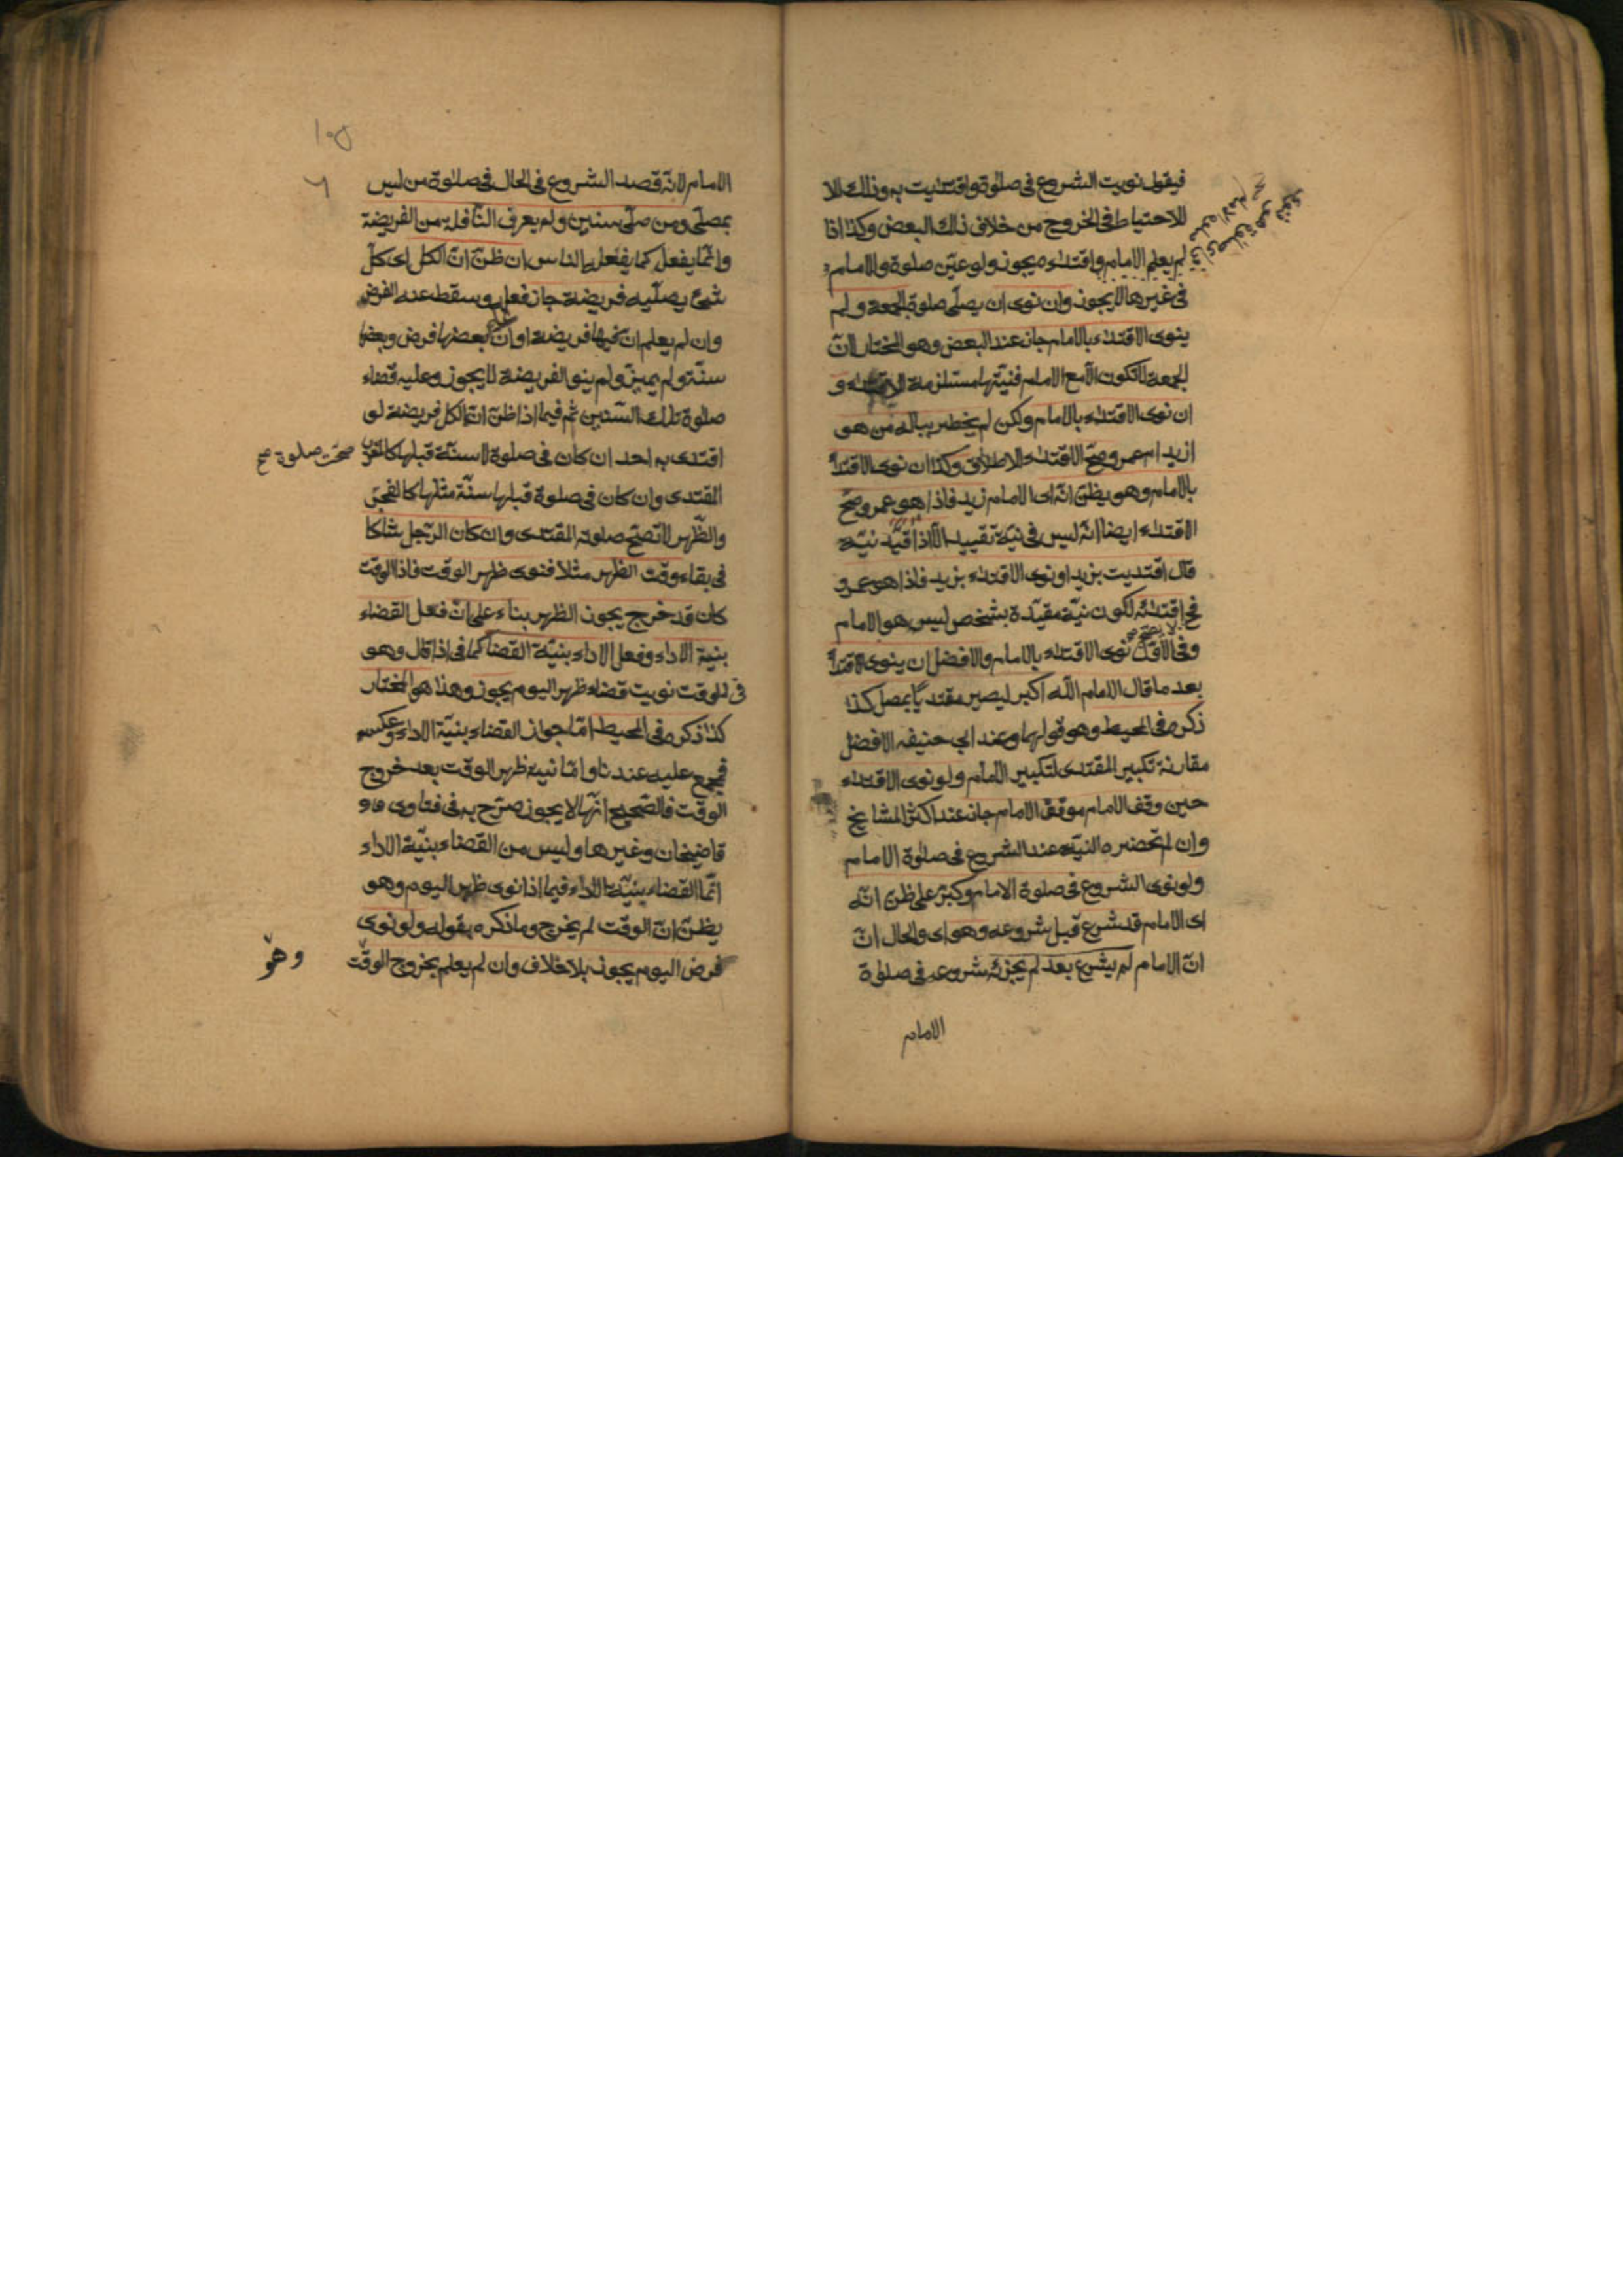 فيقول نويت الشروع فى صلوة واقتديت به وذلك الا
للاحتياط فى الخروج من خلاف ذلك البعض وكذا اذا
لم يعلم الامام واقتداءه يجوز ولو عيّن صلوة والامام
فى غيرها لا يجوز وان نوى ان يصلّى صلوة الجمعة ولم
ينوى الاقتداء بالامام جاز عند البعض وهو المختار لانّ
الجمعة لا تكون الّا مع الامام فنيّتها مستلزمة الاقتداء و
ان نوى الاقتداء بالامام ولكن لم يخطر بباله من هو
ازيد ام عمرو صحّ الاقتداء لاطلاق وكذا ان نوى الاقتداء
بالامام وهو يظنّ انّه اى الامام زيد فاذا هو عمرو صحّ
الاقتداء ايضا انّه ليس فى نيّة تقييد الّا اذا قيّد نيّته
قال اقتديت بزيد او نوى الاقتداء بزيد فاذا هو عمرو
لا يصح
فح اقتدائه لكون نيّة مقيّدة بشخص ليس هو الامام
وفى الاوّل نوى الاقتداء بالامام والافضل ان ينوى الاقتداء
بعد ما قال الامام اللّه اكبر ليصير مقتديًا بمصل كذا
ذكره فى المحيط وهو قولهما وعند ابى حنيفه الافضل
مقارنة تكبير المقتدى لتكبير الامام ولو نوى الاقتداء
حين وقف الامام موقف الامام جاز عند اكثر المشايخ
وان لم تحضره النيّة عند الشروع فى صلوة الامام
ولو نوى الشروع فى صلوة الامام وكبّر على ظنّ انّه
اى الامام قد شرع قبل شروعه وهو اى والحال انّ
انّ الامام لم يشرع بعد لم يجزئه شروعه فى صلوة
الامام
١٠٥
الامام لانّه قصد الشروع فى الحال فى صلوة من ليس
بمصلّى ومن صلّى سنين ولم يعرف النّافله من الفريضة
وانّما يفعل كما يفعل الناس ان ظنّ انّ الكل اى كلّ
شئ يصلّيه فريضة جاز فعله وسقط عنه الفرض
وان لم يعلم انّ فيها فريضة او انّ بعضها فرض وبعضها
سنّة ولم يميز ولم ينو الفريضة لا يجوز وعليه قضاء
صلوة تلك السّنين ثم فيما اذا ظنّ انّ الكل فريضة لو
اقتدى به احد ان كان فى صلوة لا سنّة قبلها كالمغرب صحّت صلوة صح
المقتدى وان كان فى صلوة قبلها سنّة مثلها كالفجر
والظّهر لا تصحّ صلوة المقتدى وان كان الرّجل شاكا
فى بقاء وقت الظهر مثلا فنوى ظهر الوقت فاذا الوقت
كان قد خرج يجوز الظهر بناء على انّ فعل القضاء
بنية الاداء وفعل الاداء بنيّة القضا كما فى اذا قال وهو
فى الوقت نويت قضاء ظهر اليوم يجوز وهذا هو المختار
كذا ذكره فى المحيط امّا جواز القضاء بنيّة الاداء وعكسه
فمجمع عليه عندنا وامّا نية ظهر الوقت بعد خروج
الوقت فالصّحيح انّها لا يجوز صرّح به فى فتاوى
قاضيخان وغيرها وليس من القضاء بنيّة الاداء
انّما القضاء بنيّة الاداء فيما اذا نوى ظهر اليوم وهو
يظنّ انّ الوقت لم يخرج وما ذكره بقوله ولو نوى
فرض اليوم يجوز بلا خلاف وان لم يعلم بخروج الوقت
وهو